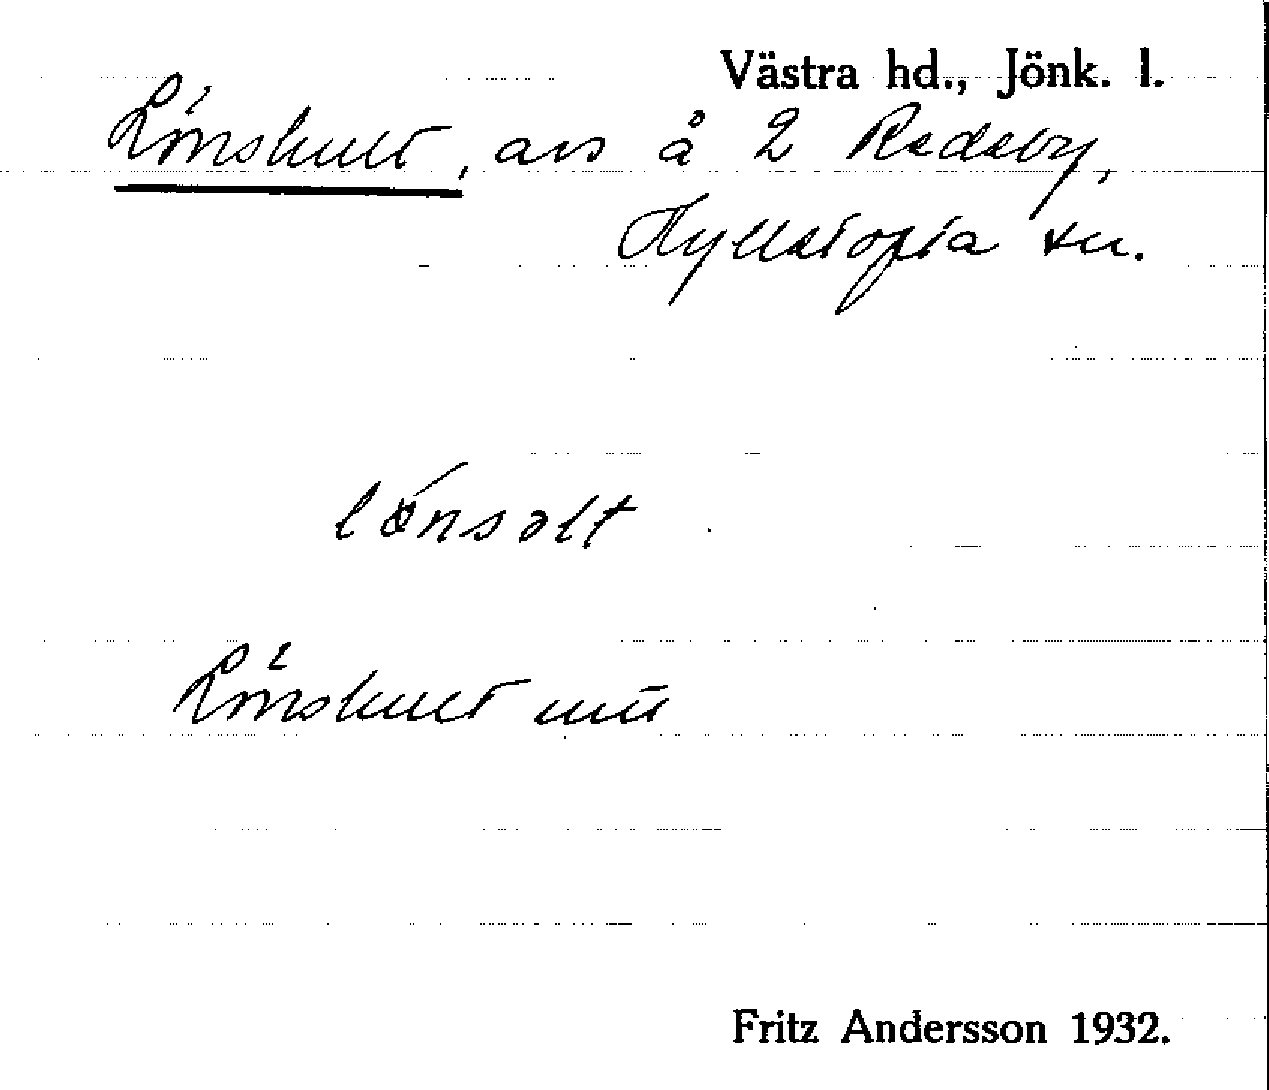 Västra hd., Jönk. l.
Lönshult, avs å 2 Redeby,
Hyllstofta sn.
lønsølt
Lönshult mtl
Fritz Andersson 1932.